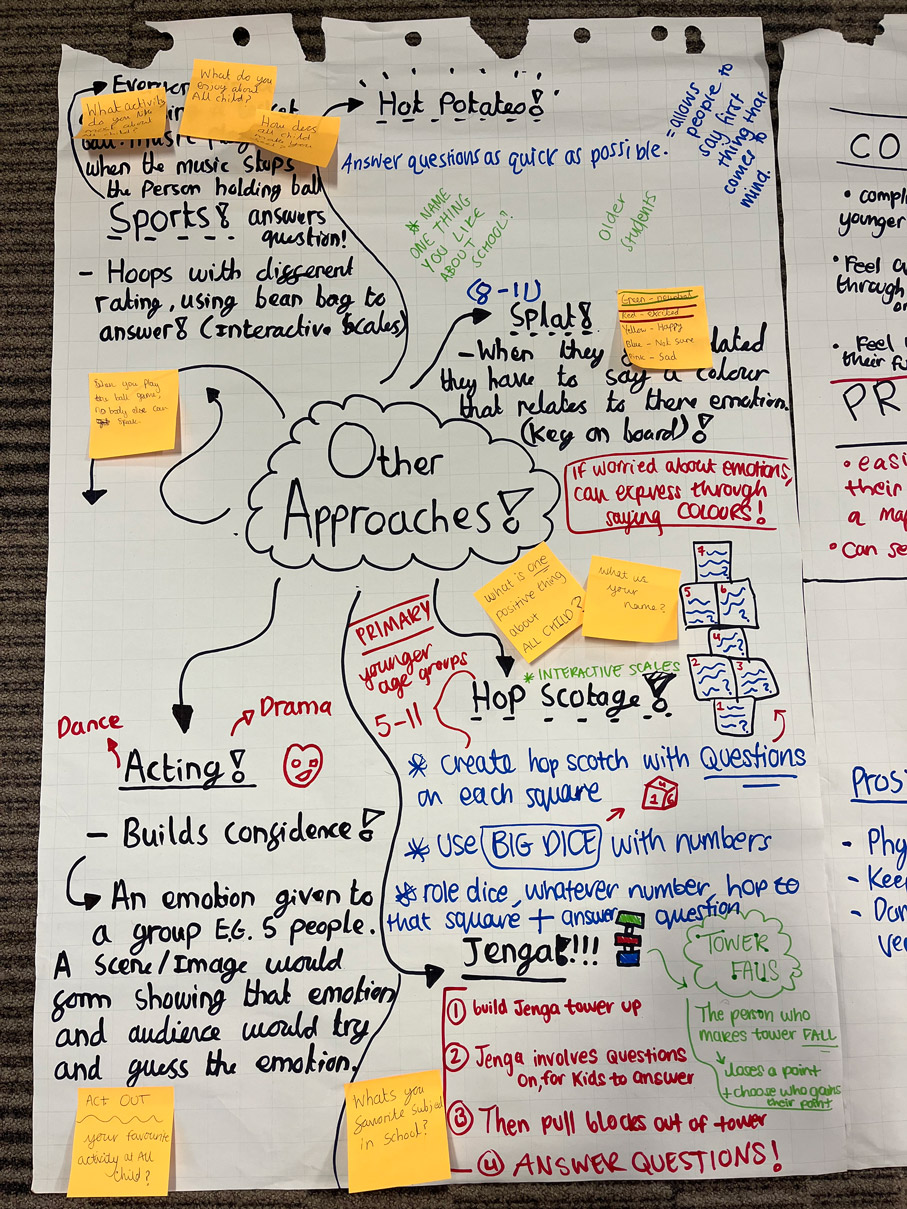 What do you
enjoy about
All child?
What activity
do you like
most about
All child?
How does
All child
when the music stops
the Person holding ball
answers
question!
Hot Potatoe!
Answer questions as quick as possible.
=allows
people to
say first
thing that
comes to
mind.
* NAME
ONE THING
YOU LIKE
ABOUT
SCHOOL?
older
students
Sports!
- Hoops with different
rating, using bean bag to
answer! (Interactive Scales)
(8-11)
Splat!
- When they
they have to say a colour
that relates to there emotion.
(Key on board)!
Green - neutral
Red - excited
Yellow - Happy
Blue - Not sure
Pink - Sad
If worried about emotions,
can express through
saying COLOURS!
When you play
the ball game,
nobody else can
speak.
Other
Approaches!
What is one
positive thing
about
ALL CHILD?
What is
your
name?
PRIMARY
younger
age groups
5-11
* INTERACTIVE SCALES
Hop Scotage!
7
5 6
4
2 3
1
* create hop scotch with Questions
on each square
* Use BIG DICE with numbers
* role dice, whatever number, hop to
that square + answer question
Dance
Drama
Acting!
- Builds confidence!
An emotion given to
a group E.G. 5 people.
A scene/Image would
form showing that emotion
and audience would try
and guess the emotion.
ACT OUT
your favourite
activity at All
Child?
Jenga!!!
① build Jenga tower up
② Jenga involves Questions
on, for Kids to answer
③ Then pull blocks out of tower
④ ANSWER QUESTIONS!
TOWER
FALLS
The person who
makes tower FALL
loses a point
+ choose who gains
their point
Whats you
favorite subject
in school?
CO
• compl
younger
• Feel
through
• Feel
their fu
PR
• easi
their
a ma
• Can se
Pros
- Phy
- Kee
- Don
ve